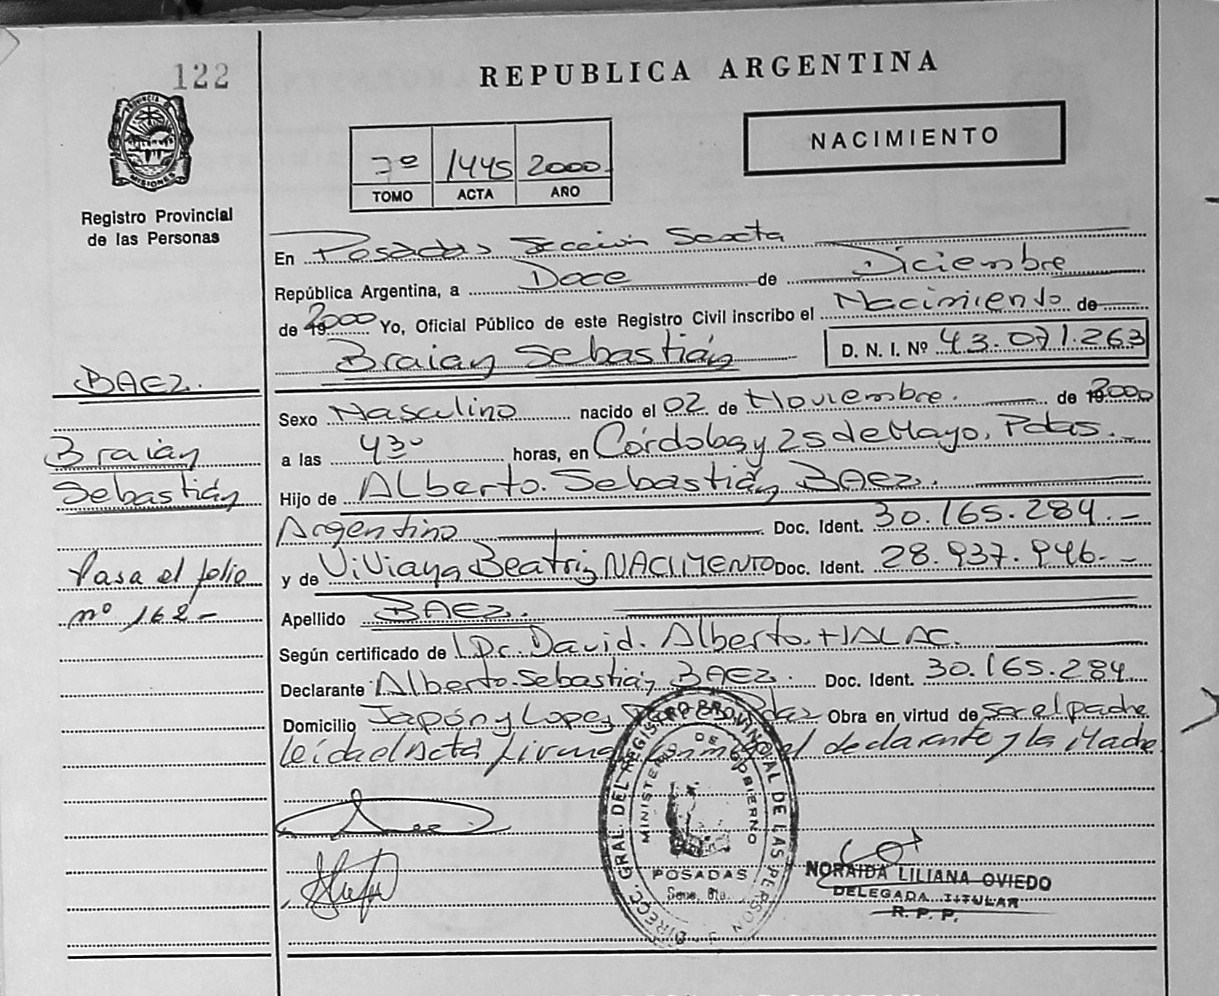 122
REPUBLICA ARGENTINA
PROVINCIA DE
MISIONES
Registro Provincial
de las Personas
7º 1445 2000
TOMO ACTA AÑO
NACIMIENTO
En Posadas Sección Sexta
República Argentina, a Doce de Diciembre
de 2000 Yo, Oficial Público de este Registro Civil inscribo el Nacimiento de
Braian Sebastián D. N. I. Nº 43.071.263
BAEZ.
Braian
Sebastián
Pasa al folio
nº 162-
Sexo Masculino nacido el 02 de Noviembre. de 2000
a las 430 horas, en Córdoba y 25 de Mayo, Pdas.-
Hijo de Alberto Sebastián BAEZ.
Argentino Doc. Ident. 30.165.284.-
y de Viviana Beatriz NACIMENTO Doc. Ident. 28.937.946.-
Apellido BAEZ.
Según certificado de Dr. David Alberto HALAC.
Declarante Alberto Sebastián BAEZ. Doc. Ident. 30.165.284
Domicilio Japón y Lopez Obra en virtud de ser el padre
leída el Acta firman conmigo el declarante y la Madre
DIRECC. GRAL. DEL REGISTRO PROVINCIAL DE LAS PERSON
MINISTERIO DE GOBIERNO
POSADAS
Secc. 6ta.
NORAIDA LILIANA OVIEDO
DELEGADA TITULAR
R. P. P.